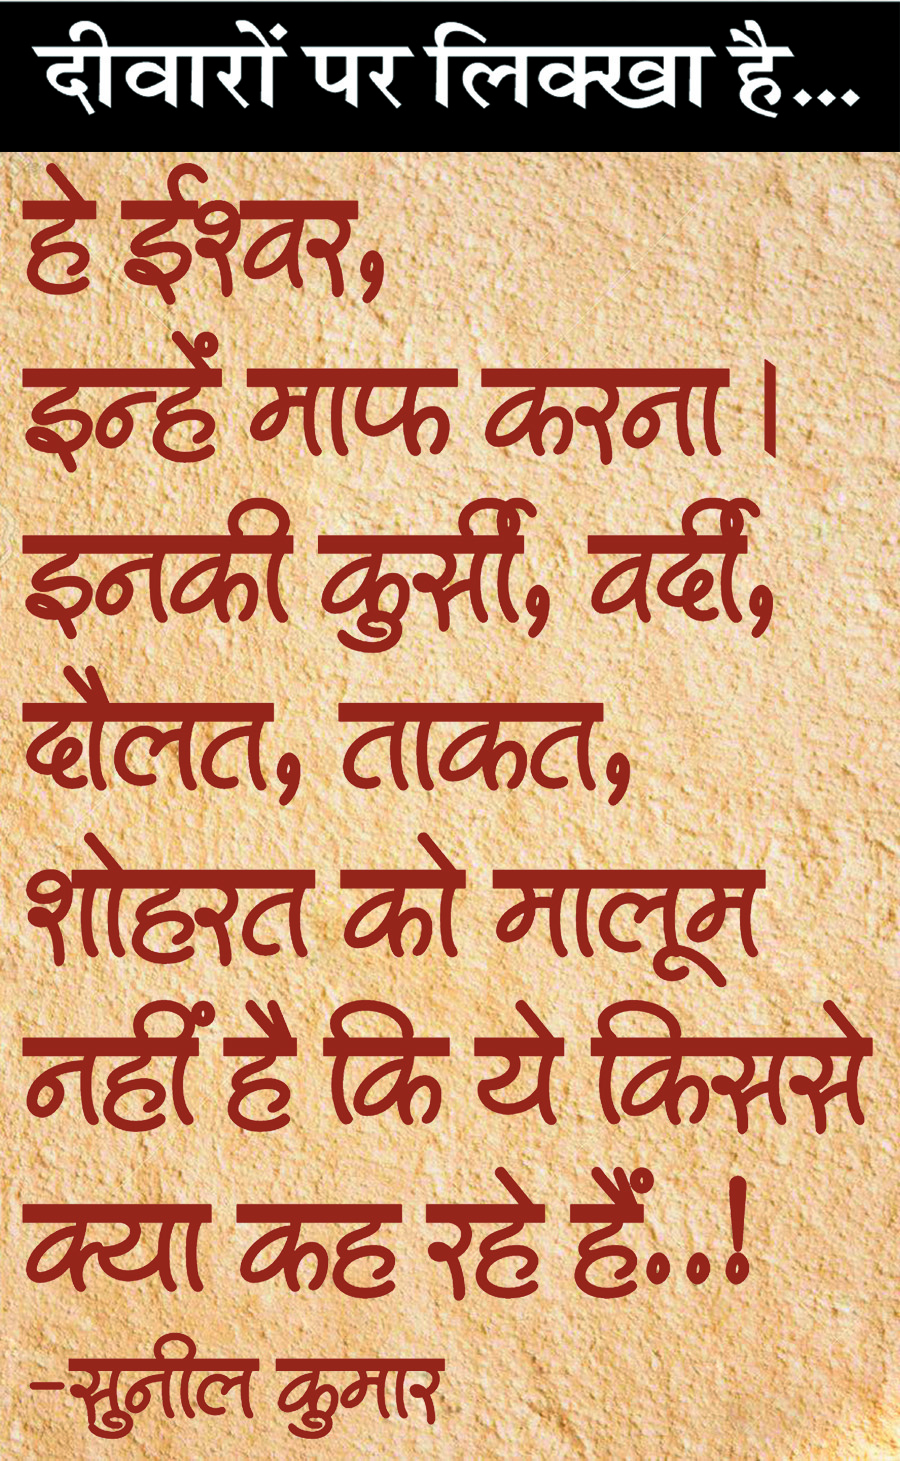 दीवारों पर लिक्खा है...
हे ईश्वर,
इन्हें माफ करना।
इनकी कुर्सी, वर्दी,
दौलत, ताकत,
शोहरत को मालूम
नहीं है कि ये किससे
क्या कह रहे हैं..!
-सुनील कुमार